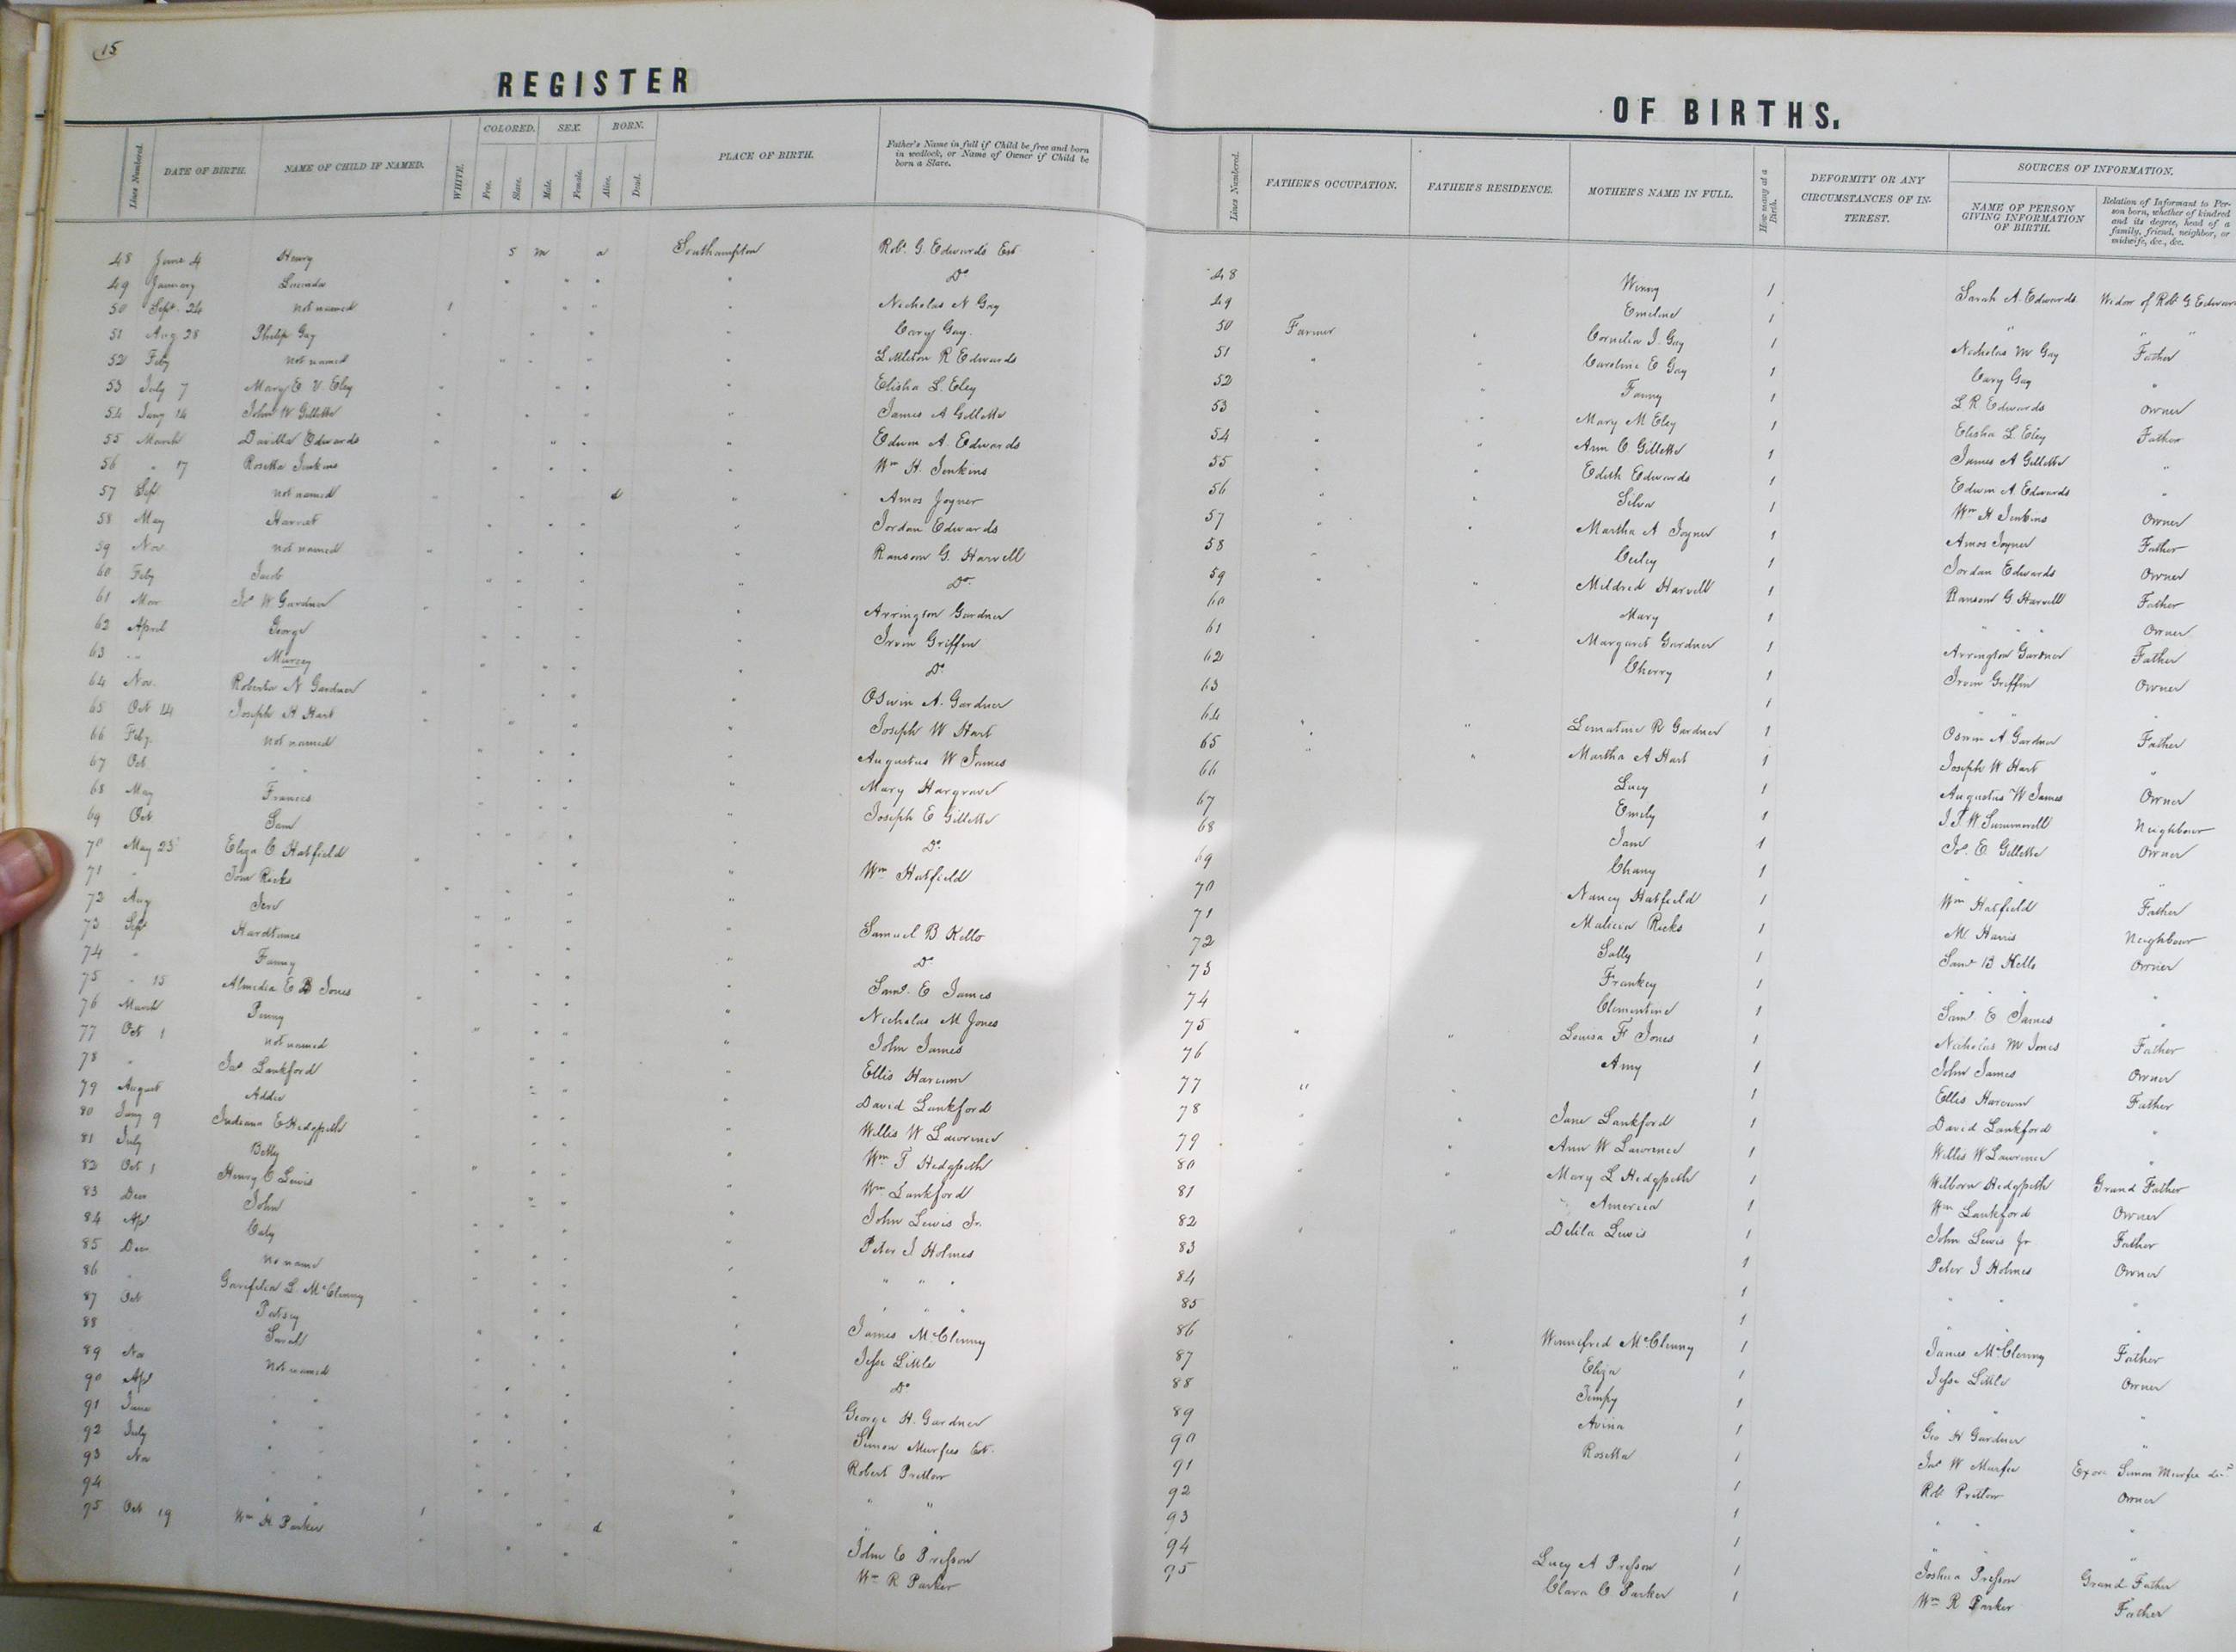 15
REGISTER
OF BIRTHS.
Lines Numbered. DATE OF BIRTH. NAME OF CHILD IF NAMED. WHITE. COLORED. Free. Slave. SEX. Male. Female. BORN. Alive. Dead. PLACE OF BIRTH. Father's Name in full if Child be free and born in wedlock, or Name of Owner if Child be born a Slave.
Lines Numbered. FATHER'S OCCUPATION. FATHER'S RESIDENCE. MOTHER'S NAME IN FULL. How many at a Birth. DEFORMITY OR ANY CIRCUMSTANCES OF INTEREST. SOURCES OF INFORMATION. NAME OF PERSON GIVING INFORMATION OF BIRTH. Relation of Informant to Person born, whether of kindred and its degree, head of a family, friend, neighbor, or midwife, &c., &c.
48 June 4 Henry s m a Southampton Rob. G. Edwards Est
49 January Lucinda " " " " Do
50 Sept. 24 not named 1 " " " Nicholas N Gay
51 Aug 28 Philip Gay " " " " Cary Gay
52 Feby not named " " " " Littleton R Edwards
53 July 7 Mary E. V. Eley " " " " Elisha L. Eley
54 Jany 14 John W Gillette " " " " James A Gillette
55 March Edwards " " " " Edwin A. Edwards
56 " 17 Rosetta Jenkins " " " " Wm H. Jenkins
57 Sept not named " " d " Amos Joyner
58 May Harriet " " " " Jordan Edwards
59 Nov not named " " " " Ransom G. Harvell
60 Feby Jacob " " " " Do
61 Mar Jos W. Gardner " " " " Arrington Gardner
62 April George " " " " Irvin Griffin
63 " " " " " " Do
64 Nov. Roberta N Gardner " " " " Oswin A. Gardner
65 Oct 14 Joseph H Hart " " " " Joseph W Hart
66 Feby. Not named " " " " Augustus W James
67 Oct " " " " " " Mary Hargrave
68 May Frances " " " " Joseph E Gillette
69 Oct Sam " " " " Do
70 May 25 Eliza C. Hatfield " " " " Wm Hatfield
71 " Tom Ricks " " " "
72 Aug " " " " Samuel B Kello
73 Sept Hardtimes " " " " Do
74 " Fanny " " " " Saml. E James
75 " 15 Almedia E B Jones " " " " Nicholas M Jones
76 March Penny " " " " John James
77 Oct 1 not named " " " " Ellis Harcum
78 " Jas Lankford " " " " David Lankford
79 August Addie " " " " Willis W Lawrence
80 Jany 9 Indiana E Hedgpeth " " " " Wm T Hedgpeth
81 July Betty " " " " Wm Lankford
82 Oct 1 Henry C Lewis " " " " John Lewis Jr.
83 Dec John " " " " Peter J Holmes
84 Apl " " " " " " "
85 Dec no name " " " " " " "
86 " L. McClenny " " " " James McClenny
87 Oct Patsey " " " " Jesse Little
88 Sarah " " " " Do
89 No Not named " " " " George H. Gardner
90 Apl " " " " " Simon Murfee Est.
91 June " " " " " Robert Pretlow
92 July " " " " " " "
93 No " " " " " " "
94 " " " " d " John E Presson
95 Oct 19 Wm H. Parker " " " " Wm R Parker
48 Winny 1 Sarah A. Edwards Widow of Rob G Edwards
49 Emeline 1 " " "
50 Farmer " Cornelia J. Gay 1 Nicholas M Gay Father
51 " " Caroline E Gay 1 Cary Gay "
52 Fanny 1 L R. Edwards Owner
53 " " Mary M Eley 1 Elisha L. Eley Father
54 " " Ann C. Gillette 1 James A Gillette "
55 " " Edith Edwards 1 Edwin A Edwards "
56 Silva 1 Wm H Jenkins Owner
57 " " Martha A Joyner 1 Amos Joyner Father
58 1 Jordan Edwards Owner
59 " " Mildred Harvell 1 Ransom G. Harvell Father
60 Mary 1 " " " Owner
61 " " Margaret Gardner 1 Arrington Gardner Father
62 Cherry 1 Irvin Griffin Owner
63 1 " " "
64 " " R Gardner 1 Oswin A Gardner Father
65 " " Martha A Hart 1 Joseph W Hart "
66 Lucy 1 Augustus W James Owner
67 Emily 1 J. T. W Summerell Neighbour
68 Jane 1 Jos. E. Gillette Owner
69 Chany 1 " " "
70 Nancy Hatfield 1 Wm Hatfield Father
71 Malicia Ricks 1 M. Harris Neighbour
72 Sally 1 Saml B Kello Owner
73 Frankey 1 " " "
74 Clementine 1 Saml. E James "
75 " " Louisa F Jones 1 Nicholas M Jones Father
76 Amy 1 John James Owner
77 " " 1 Ellis Harcum Father
78 " " Jane Lankford 1 David Lankford "
79 " " Ann W Lawrence 1 Willis W Lawrence "
80 " " Mary L Hedgpeth 1 Wilborn Hedgpeth Grand Father
81 America 1 Wm Lankford Owner
82 " " Delila Lewis 1 John Lewis Jr Father
83 1 Peter J Holmes Owner
84 1 " " "
85 1 "
86 " " Winnifred McClenny 1 James McClenny Father
87 " Eliza 1 Jesse Little Owner
88 Tempy 1 " " "
89 Avina 1 Geo H Gardner "
90 Rosetta 1 Jno W Murfee Exor Simon Murfee
91 1 Rob Pretlow Owner
92 1 " " "
93 1 " "
94 Lucy A Presson 1 Joshua Presson Grand Father
95 Clara C. Parker 1 Wm R Parker Father